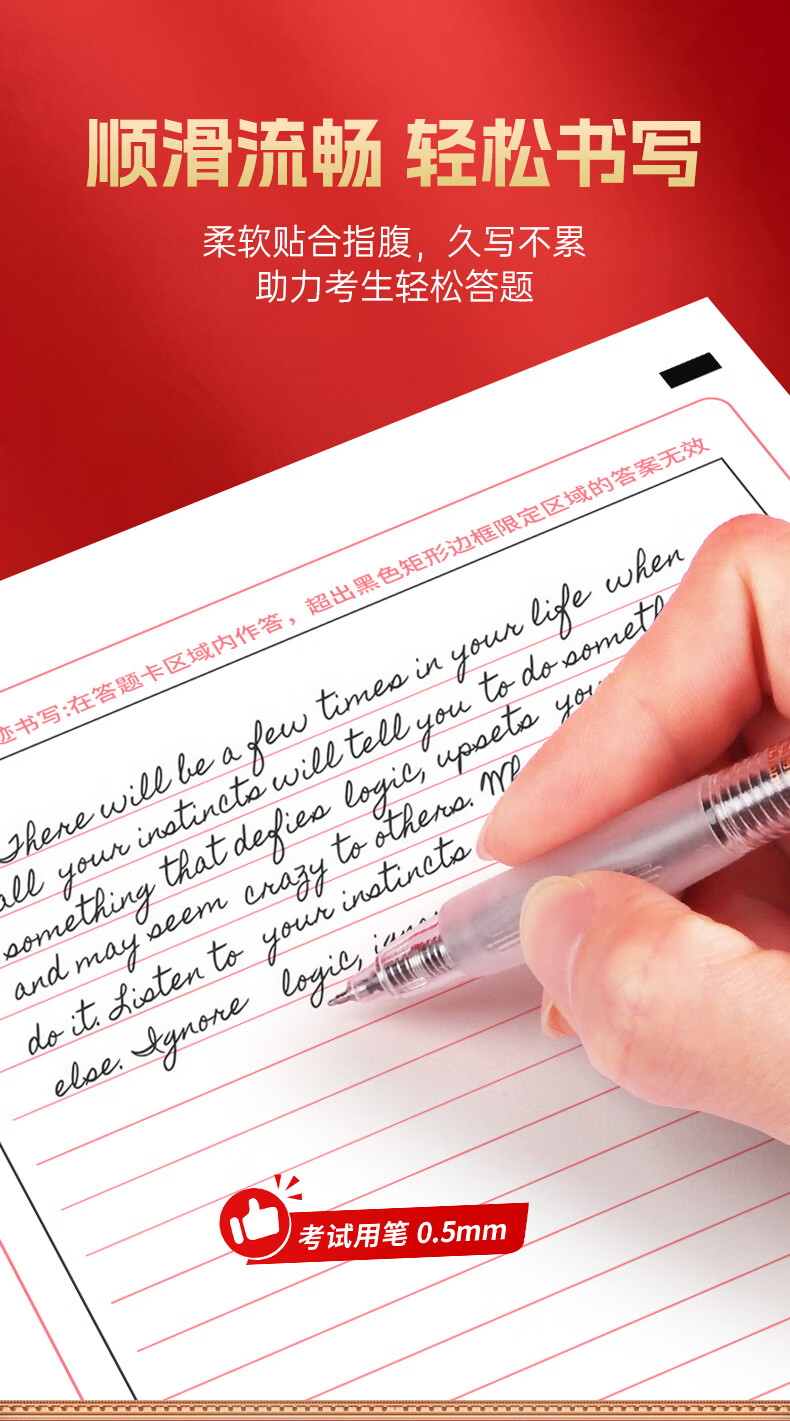 顺滑流畅 轻松书写
柔软贴合指腹，久写不累
助力考生轻松答题
迹书写:在答题卡区域内作答，超出黑色矩形边框限定区域的答案无效
There will be a few times in your life when
all your instincts will tell you to do
something that defies logic, upsets
and may seem crazy to others.
do it. Listen to your instincts
else. Ignore logic,
考试用笔 0.5mm